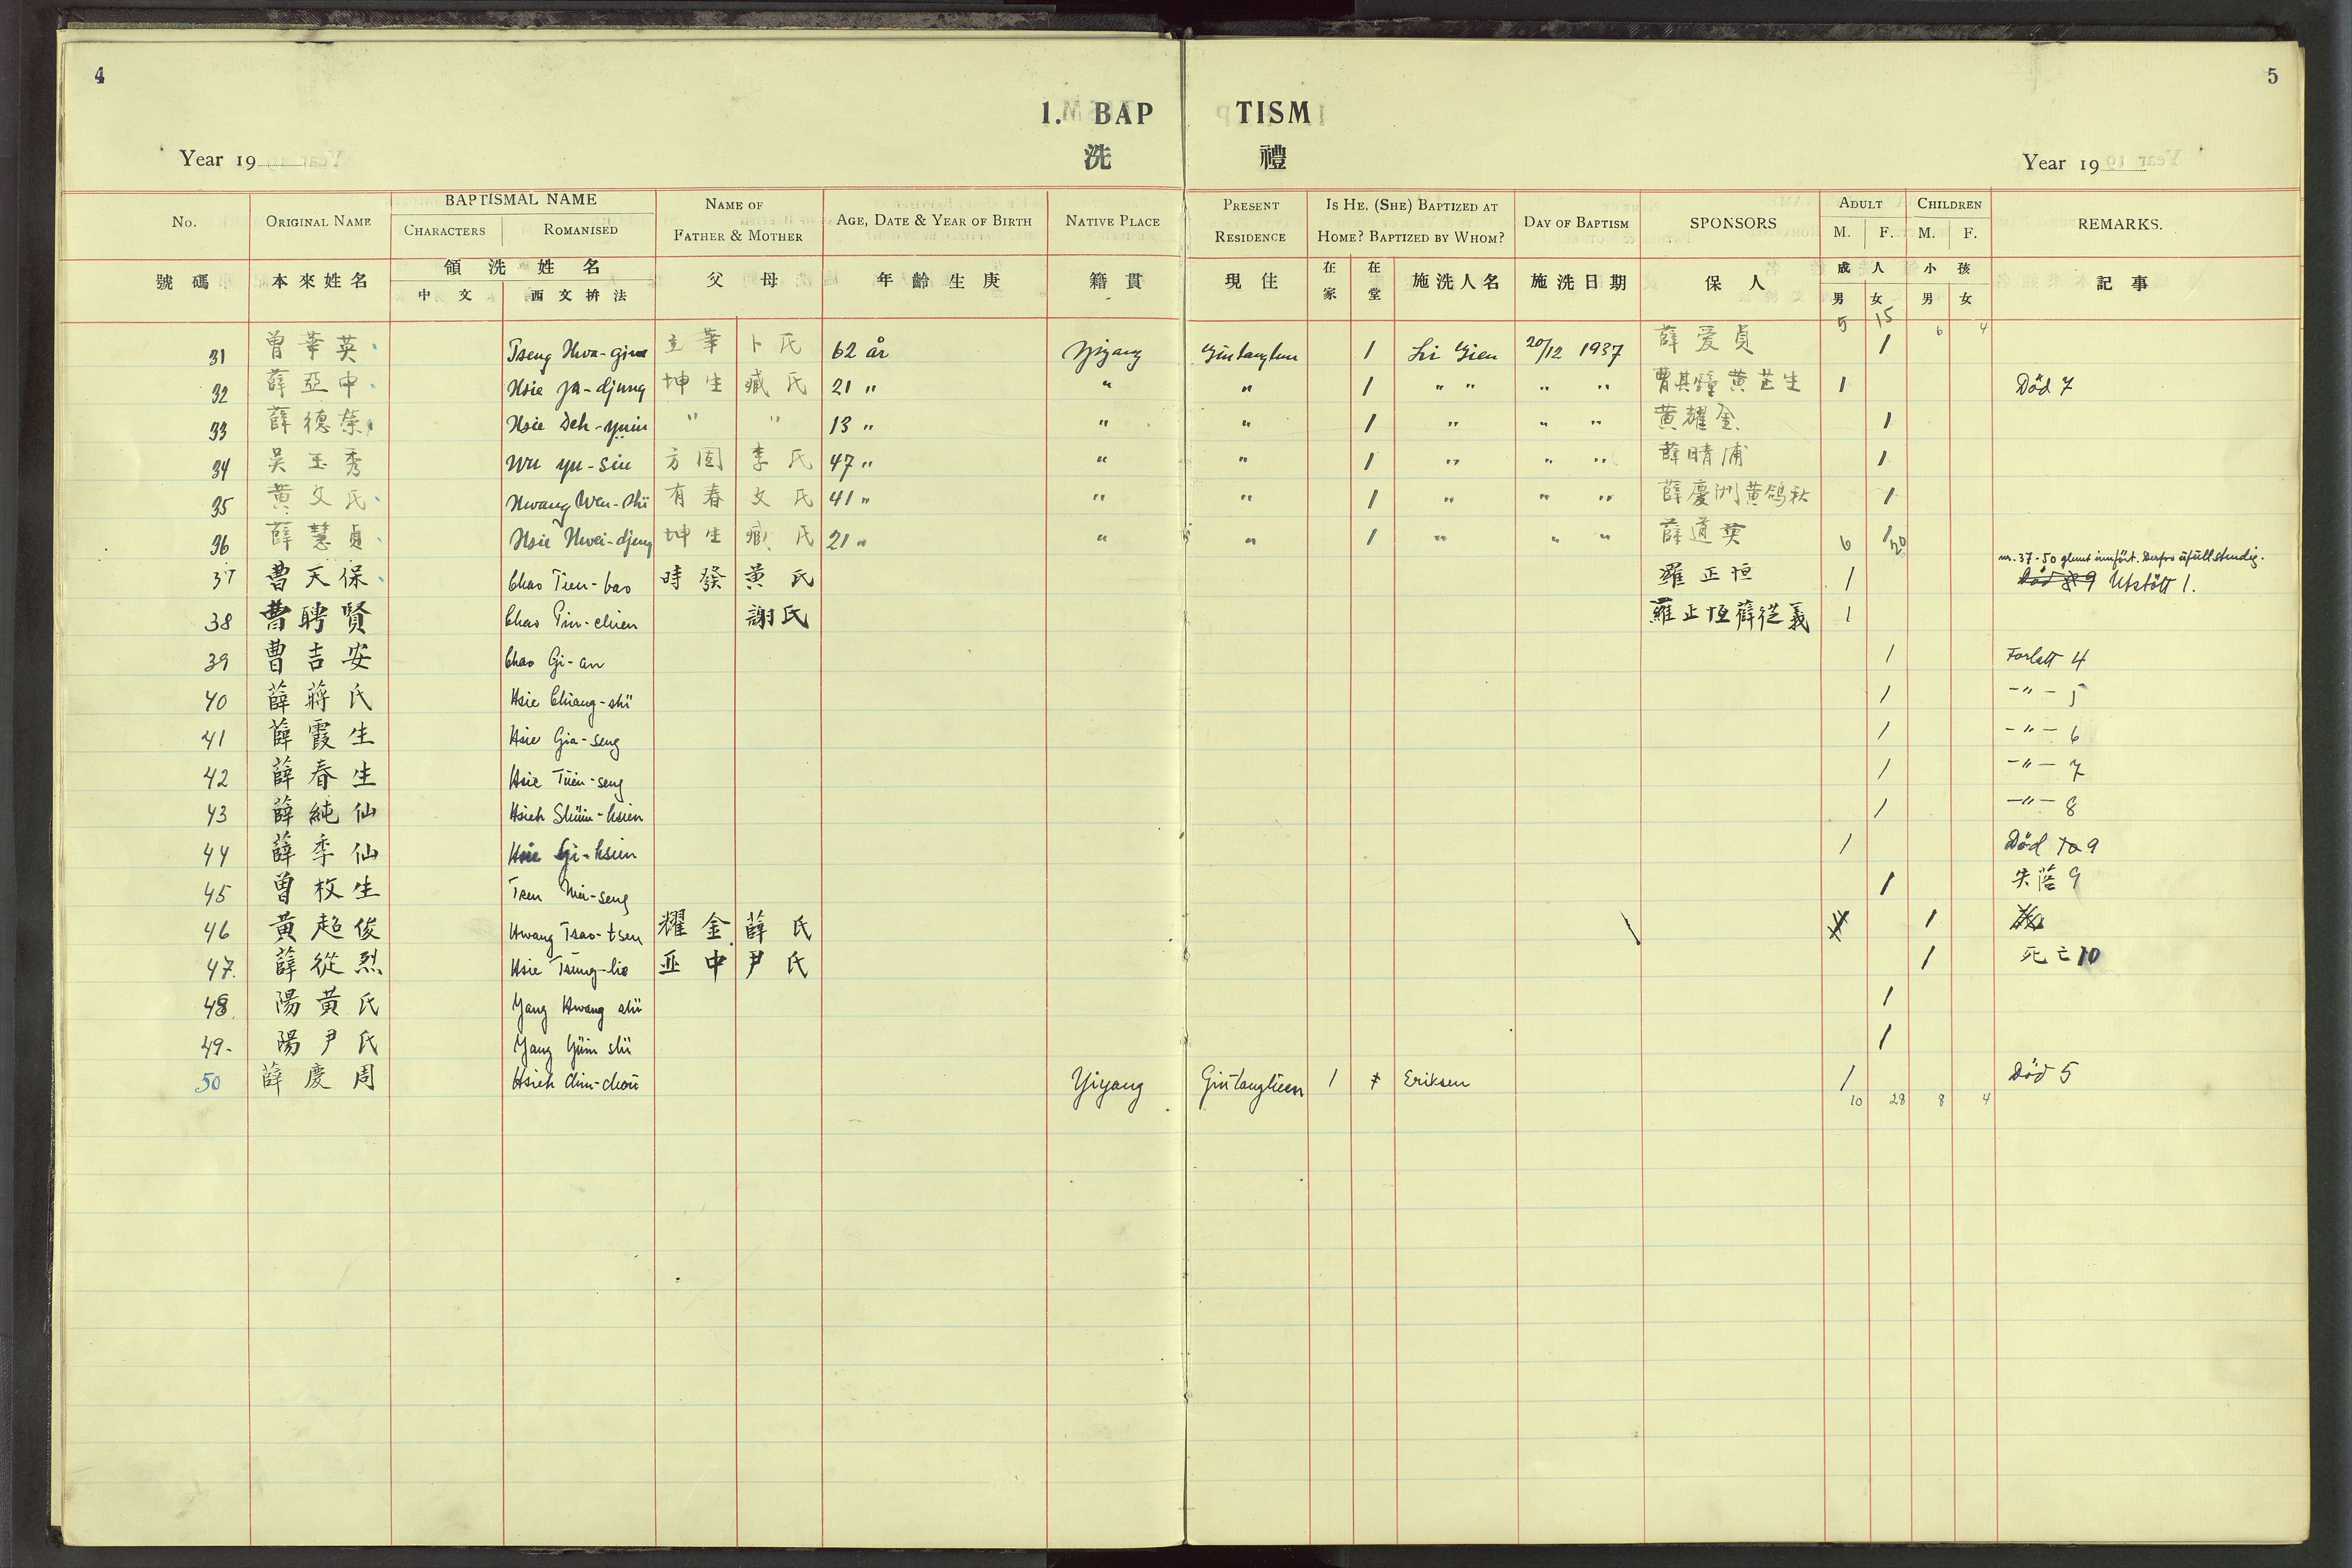 4
5
1. BAP TISM
洗 禮
Year 19
Year 19
No. ORIGINAL NAME BAPTISMAL NAME NAME OF FATHER & MOTHER AGE, DATE & YEAR OF BIRTH NATIVE PLACE PRESENT RESIDENCE IS HE, (SHE) BAPTIZED AT HOME? BAPTIZED BY WHOM? DAY OF BAPTISM SPONSORS ADULT CHILDREN REMARKS.
CHARACTERS ROMANISED M. F. M. F.
號碼 本來姓名 領洗姓名 父母 年齡生庚 籍貫 現住 在家 在堂 施洗人名 施洗日期 保人 成人 小孩 記事
中文 西文拚法 男 女 男 女
5 15 6 4
31 曾華英 Tseng Hwa- 立華 卜氏 62 år Yiyang 1 Li Gien 20/12 1937 薛爱貞 1
32 薛亞中 Hsie Ya-djung 坤生 臧氏 21 " " " 1 " " " " 曹其 黄芝生 1 Död 7
33 薛德 Hsie Deh-yuin " " 13 " " " 1 " " " 黄耀金 1
34 吴玉秀 Wu yu-siu 方固 李氏 47 " " " 1 " " " 薛晴浦 1
35 黃文氏 Hwang Wen-shï 有春 文氏 41 " " " 1 " " " 薛慶洲 黄鸽秋 1
36 薛慧貞 Hsie Hwei-djeng 坤生 臧氏 21 " " " 1 " " " 薛道英 6 1 20
nr. 37-50 glemt innført. Derfor ufullstendig.
37 曹天保 Chao Tien-bao 時發 黄氏 羅正恒 1 Död 9 Utstött 1.
38 曹聘賢 Chao Pin-chien 謝氏 羅正恆 薛從義 1
39 曹吉安 Chao Gi-an 1 Forlatt 4
40 薛蔣氏 Hsie Chiang-shï 1 -"- 5
41 薛霞生 Hsie Gia-seng 1 -"- 6
42 薛春生 Hsie Tüen-seng 1 -"- 7
43 薛純仙 Hsieh Shüin-hsien 1 -"- 8
44 薛季仙 Hsie Gi-hsien 1 Död 9
45 曾枚生 Tsen Mei-seng 1 失落 9
46 黃超俊 Hwang Tsao-tsen 耀金 薛氏 1
47. 薛從烈 Hsie Tsung-lie 亚中 尹氏 1 死亡 10
48. 陽黃氏 Yang Hwang shï 1
49. 陽尹氏 Yang Yüin shï 1
50 薛慶周 Hsieh Chin-chou Yiyang 1 Eriksen 1 Död 5
10 28 8 4